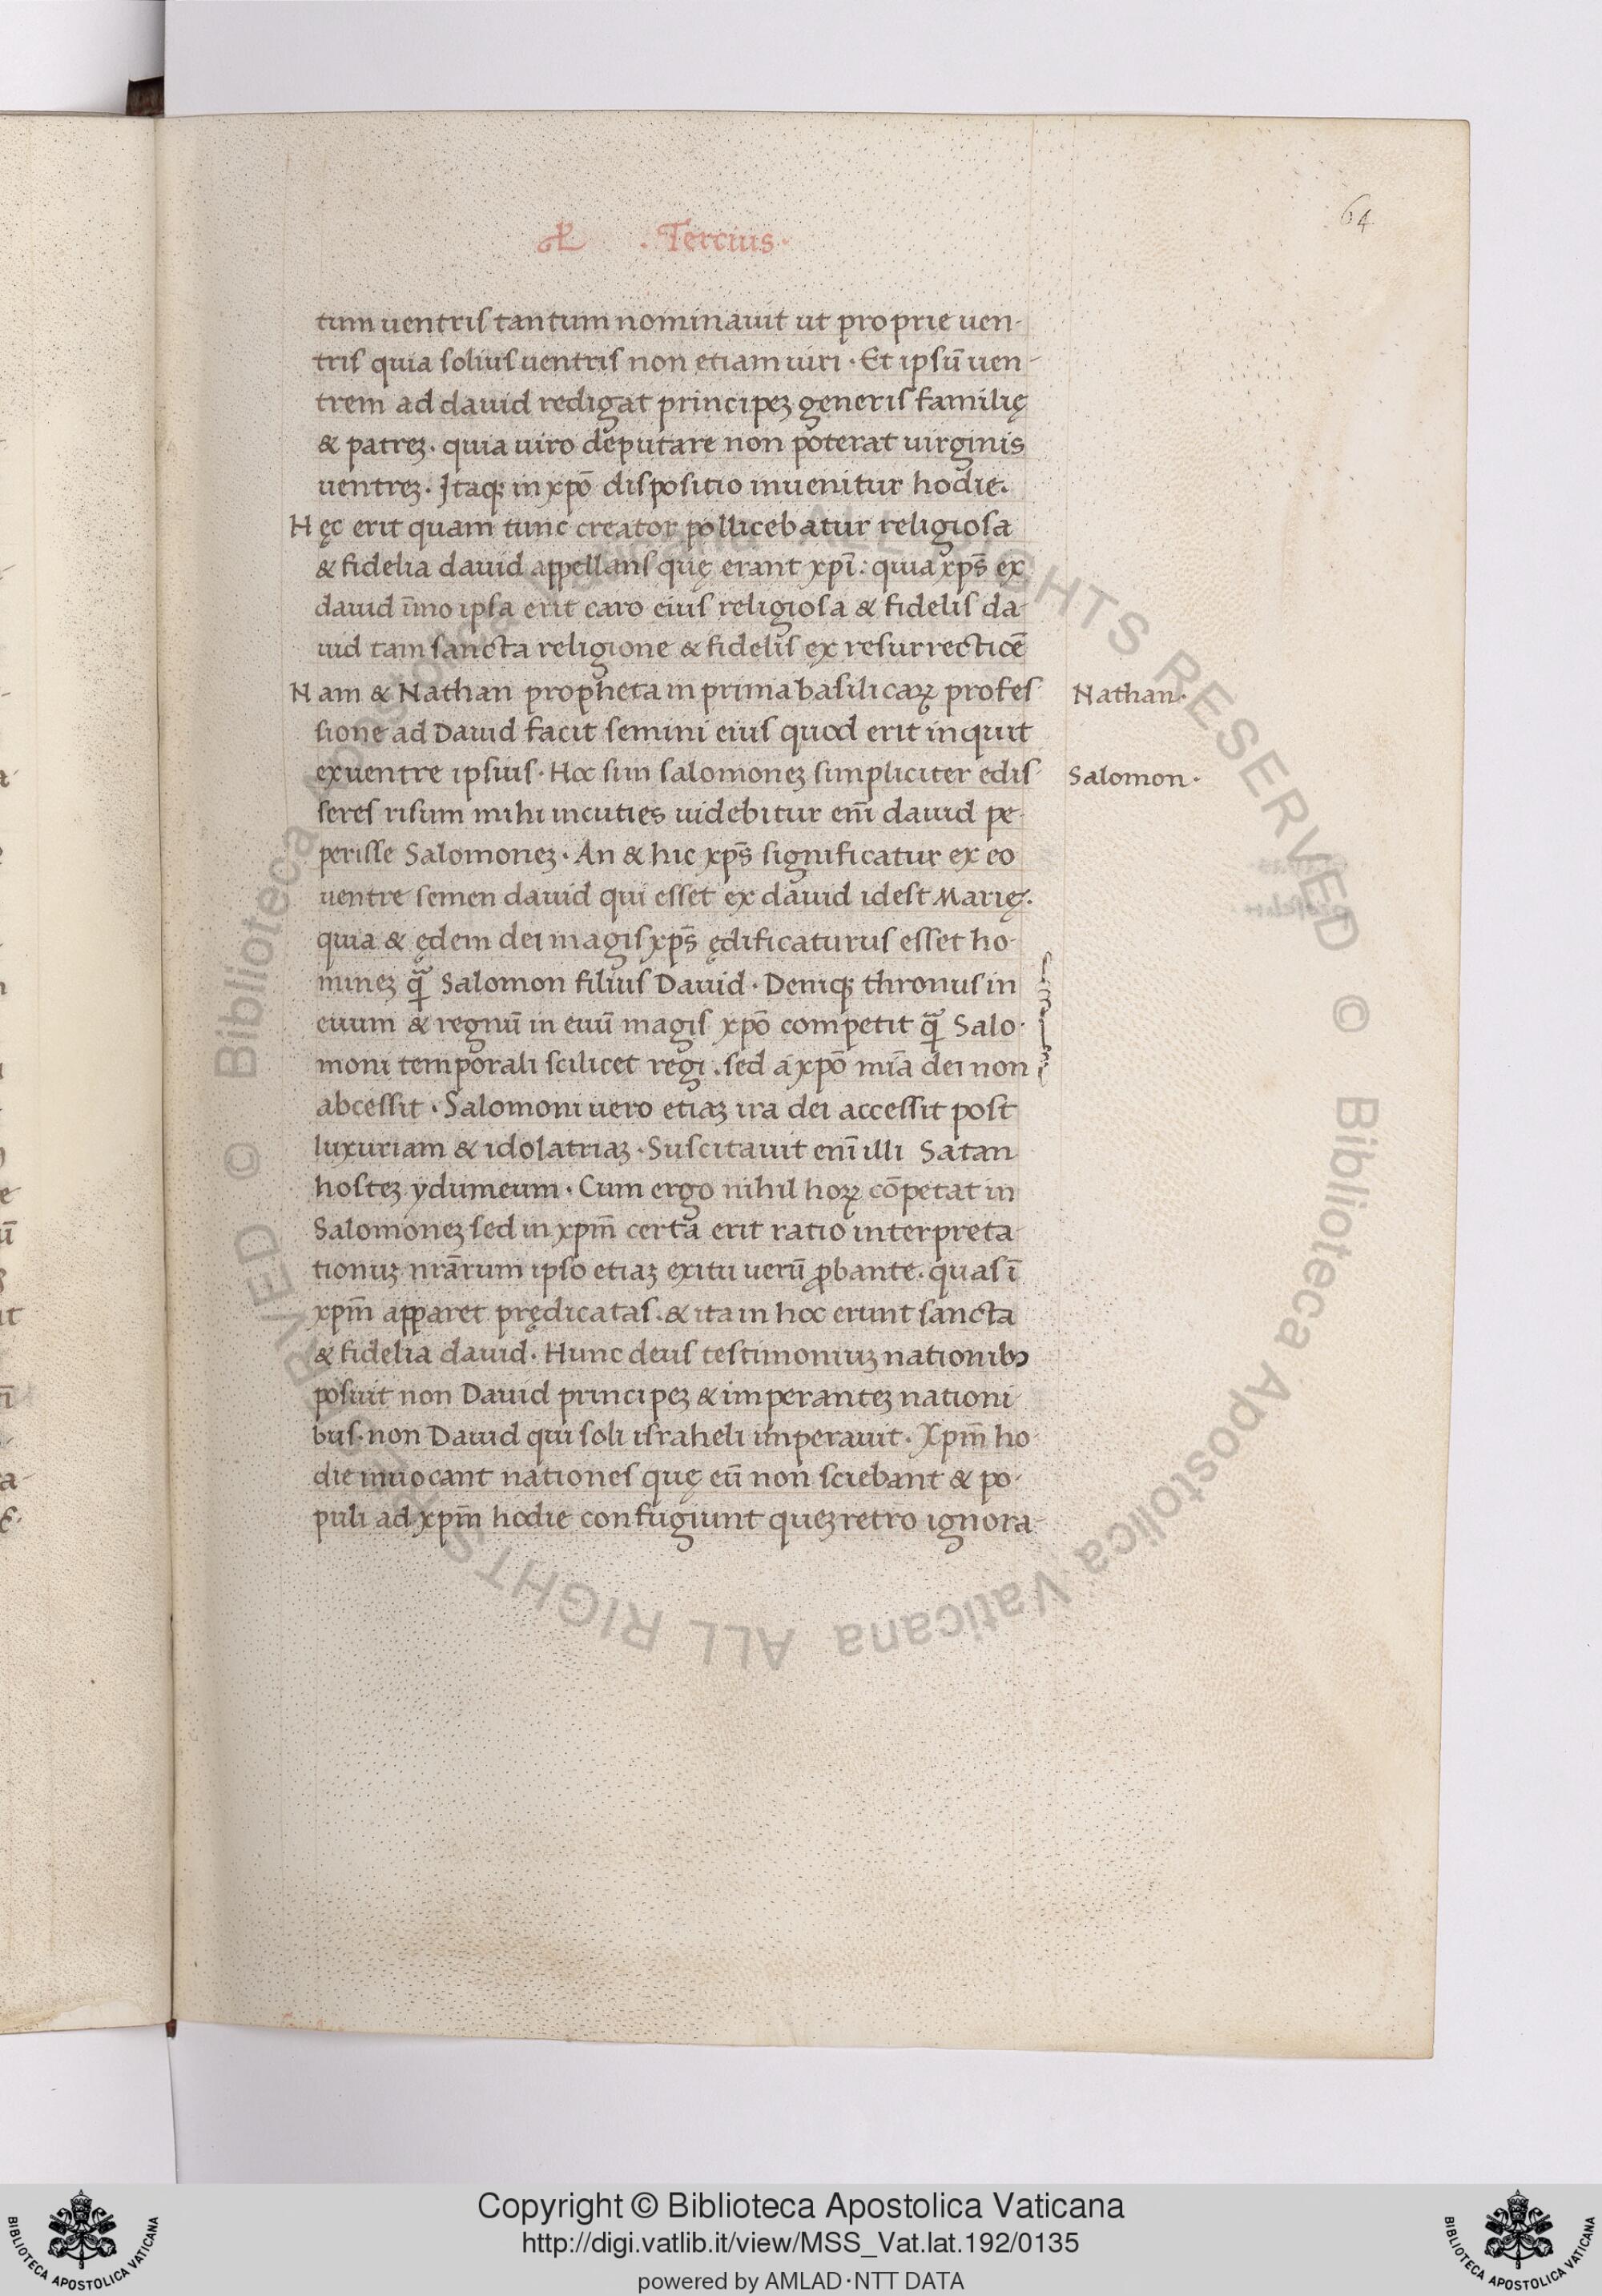 64
. Tercius.
tum uentris tantum nominauit ut proprie uen-
tris quia solius uentris non etiam uiri · Et ipsū uen-
trem ad dauid redigat principeꝫ generis familię
& patreꝫ · quia uiro deputare non poterat uirginis
uentreꝫ · Itaqꝫ in xp̄o dispositio inuenitur hodie.
Hęc erit quam tunc creator pollicebatur religiosa
& fidelia dauid appellans quę erant xp̄i: quia xp̄s ex
dauid īmo ipsa erit caro eius religiosa & fidelis da-
uid tam sancta religione & fidelis ex resurrecticē
Nam & Nathan propheta in prima basilicaꝝ profes-
sione ad Dauid facit semini eius quod erit inquit
ex uentre ipsius · Hoc sim salomoneꝫ simpliciter edis-
seres risum mihi incuties uidebitur eni᷒ dauid pe-
perisse Salomoneꝫ · An & hic xp̄s significatur ex eo
uentre semen dauid qui esset ex dauid idest Marię.
quia & ędem dei magis xp̄s ędificaturus esset ho-
mineꝫ qꝫ̄ Salomon filius Dauid · Deniqꝫ thronus in
euum & regnū in euū magis xp̄o competit qꝫ̄ Salo-
moni temporali scilicet regi . sed a xp̄o mīa dei non
abcessit · Salomoni uero etiaꝫ ira dei accessit post
luxuriam & idolatriaꝫ · Suscitauit enī illi Satan
hosteꝫ ydumeum · Cum ergo nihil hoꝝ cōpetat in
Salomoneꝫ sed in xpm̄ certa erit ratio interpreta-
tionuꝫ nrārum ipso etiaꝫ exitu uerū ꝓbante . quas ī
xpm̄ apparet prędicatas . & ita in hoc erunt sancta
& fidelia dauid · Hunc deus testimoniuꝫ nationibꝫ
posuit non Dauid principeꝫ & imperanteꝫ nationi
bus · non Dauid qui soli israheli imperauit · Xpm̄ ho-
die inuocant nationes quę eū non sciebant & po-
puli ad xpm̄ hodie confugiunt queꝫ retro ignora-
Nathan·
Salomon·
© Biblioteca Apostolica Vaticana ALL RIGHTS RESERVED © Biblioteca Apostolica Vaticana ALL RIGHTS RESERVED
Copyright © Biblioteca Apostolica Vaticana
http://digi.vatlib.it/view/MSS_Vat.lat.192/0135
powered by AMLAD·NTT DATA
BIBLIOTECA APOSTOLICA VATICANA
BIBLIOTECA APOSTOLICA VATICANA